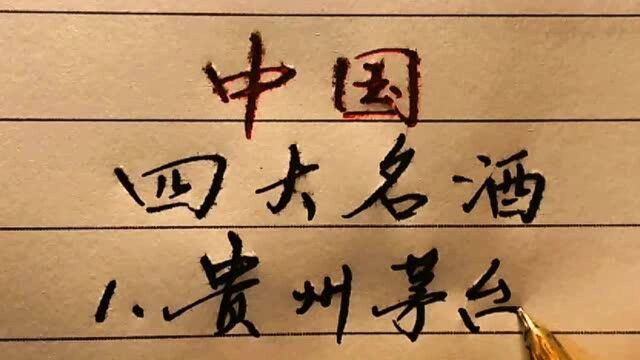 中国
四大名酒
1、贵州茅台